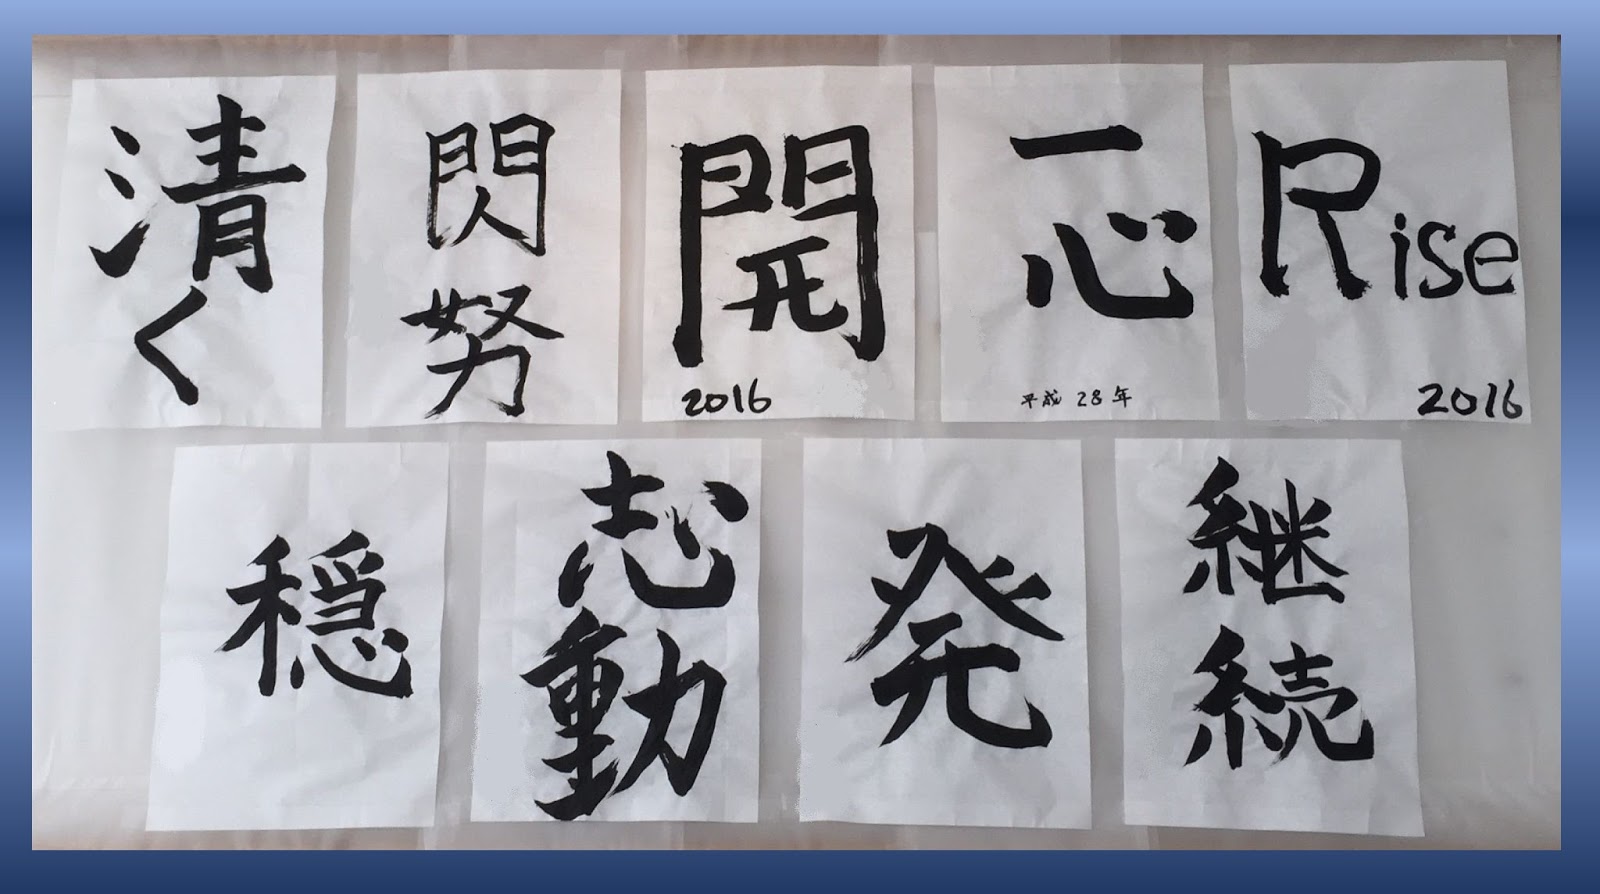 清く
閃努
開
2016
一心
平成28年
Rise
2016
穏
志動
発
継続